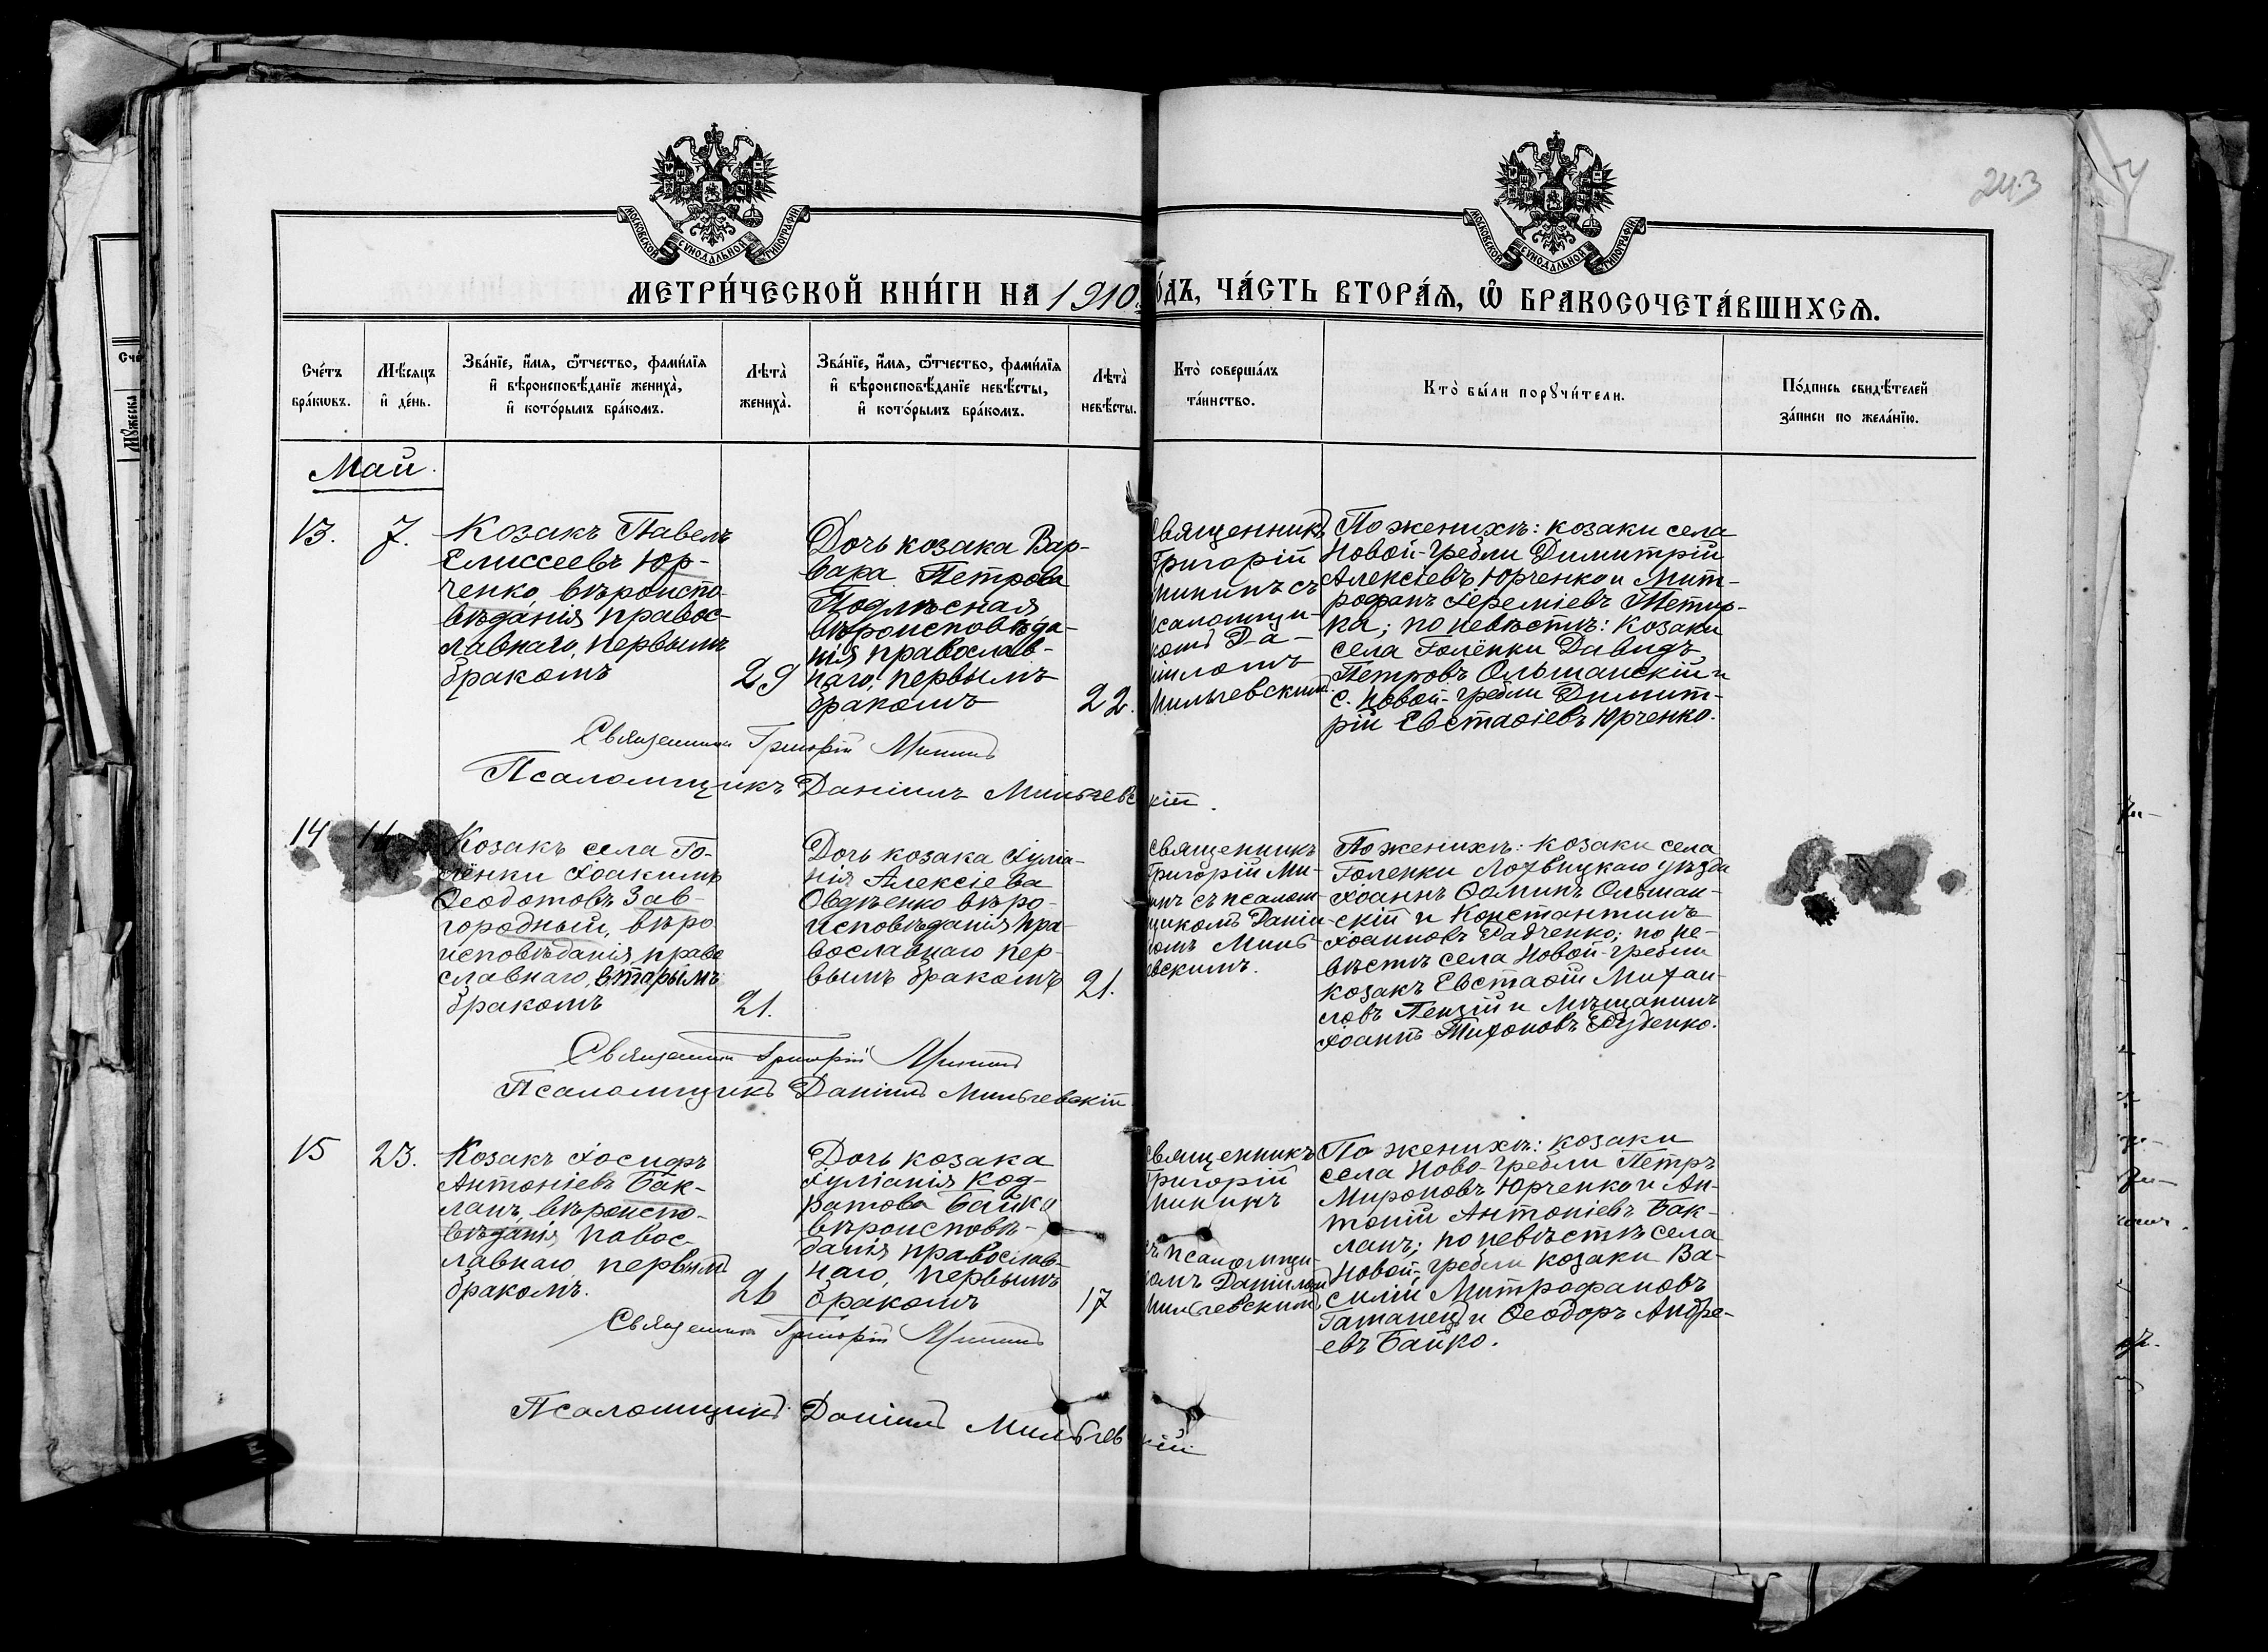 243
МОСКОВСКОЙ СУНОДАЛЬНОЙ ТИПОГРАФІИ
МОСКОВСКОЙ СУНОДАЛЬНОЙ ТИПОГРАФІИ
МЕТРИ́ЧЕСКОЙ КНИ́ГИ НА 1910 го́дъ, ЧА́СТЬ ВТОРА́Ѧ, Ѡ БРАКОСОЧЕТА́ВШИХСѦ.
Сче́тъ
бра́кѡвъ.
Мѣ́сяцъ
и҆ де́нь.
Зва́нїе, и҆́мѧ, ѻ҆́тчество, фами́лїѧ
и҆ вѣроисповѣ́данїе жениха̀,
и҆ кото́рымъ бра́комъ.
Лѣта̀
жениха̀.
Зва́нїе, и҆́мѧ, ѻ҆́тчество, фами́лїѧ
и҆ вѣроисповѣ́данїе невѣ́сты,
и҆ кото́рымъ бра́комъ.
Лѣта̀
невѣ́сты.
Кто̀ соверша́лъ
та́инство.
Кто̀ бы́ли порꙋчи́тели.
По́дпись свидѣ́телей
за́писи по жела́нїю.
Май.
13.
7.
Козакъ Павелъ
Елиссеевъ Юр-
ченко, вѣроиспо-
вѣданія правос-
лавнаго, первымъ
бракомъ
29
Дочь козака Вар-
вара Петрова
Подлѣсная
вѣроисповѣда-
нія православ-
наго, первымъ
бракомъ
22.
Священникъ
Григорій
Мининъ съ
псаломщи-
комъ Да-
ніиломъ
Мильчевскимъ
По женихѣ: козаки села
Новой-Гребли Димитрій
Алексіевъ Юрченко и Мит-
рофанъ Іереміевъ Тетир-
ка; по невѣстѣ: козаки
села Голёнки Давидъ
Петровъ Ольшанскій и
с. Новой-Гребли Димит-
рій Евстафіевъ Юрченко.
Священникъ Григорій Мининъ
Псаломщикъ Даніилъ Мильчевскій.
14
Козакъ села Го-
лёнки Іоакимъ
Ѳеодотовъ Зав-
городный, вѣро
исповѣданія право
славнаго, вторымъ
бракомъ
21.
Дочь козака Іуліа-
нія Алексіева
Овдѣенко вѣро-
исповѣданія пра-
вославнаго пер-
вымъ бракомъ
21.
Священникъ
Григорій Ми-
нинъ съ псалом-
щикомъ Даніи-
ломъ Миль-
чевскимъ.
По женихѣ: козаки села
Голенки Лохвицкаго уѣзда
Іоаннъ Ѳоминъ Ольшан-
скій и Константинъ
Іоанновъ Радченко; по не-
вѣстѣ села Новой-Гребли
козакъ Евстафій Михаи-
ловъ и мѣщанинъ
Іоаннъ Тихоновъ
Священникъ Григорій Мининъ
Псаломщикъ Даніилъ Мильчевскій
15
23.
Козакъ Іосифъ
Антоніевъ Бак-
ланъ, вѣроиспо-
вѣданія павос-
лавнаго, первымъ
бракомъ.
26
Дочь козака
Іуліанія Код-
ратова Байко
вѣроисповѣ-
данія православ-
наго, первымъ
бракомъ
17
Священникъ
Григорій
Мининъ
съ псаломщи-
комъ Даніиломъ
Мильчевскимъ
По женихѣ: козаки
села Ново-Гребли Петръ
Мироновъ Юрченко и Ан-
тоній Антоніевъ Бак-
ланъ; по невѣстѣ села
Новой-Гребли козаки Ва-
силій Митрофановъ
Гатанецъ и Ѳеодоръ Андре-
евъ Байко.
Священникъ Григорій Мининъ
Псаломщикъ Даніилъ Мильчевскій